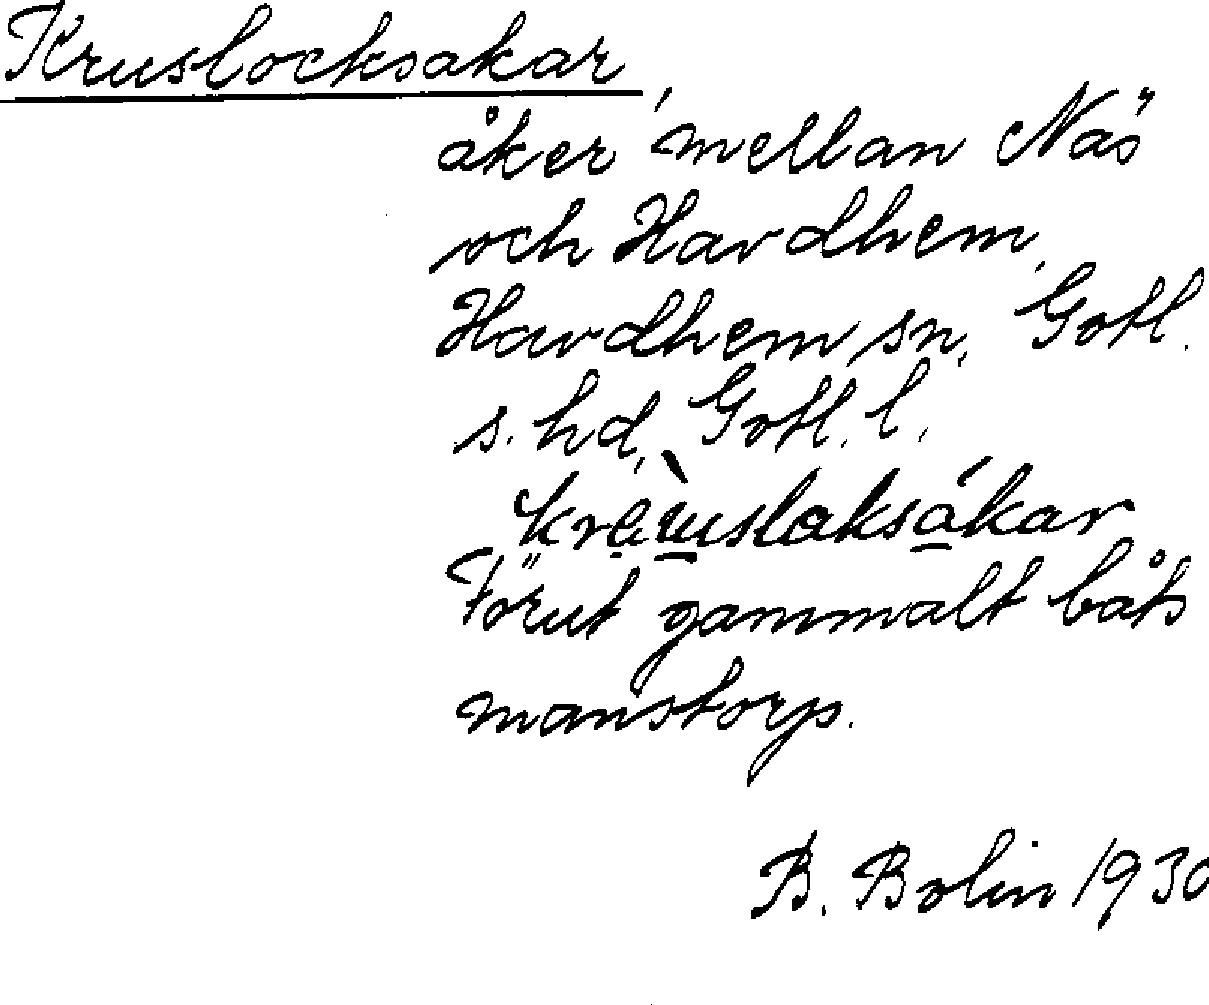 Kruslocksakar,
åker mellan Näs
och Havdhem,
Havdhem sn, Gotl.
s. hd, Gotl. l.
kräuslaksákar
Förut gammalt båts
manstorp.
B. Bolin 1930